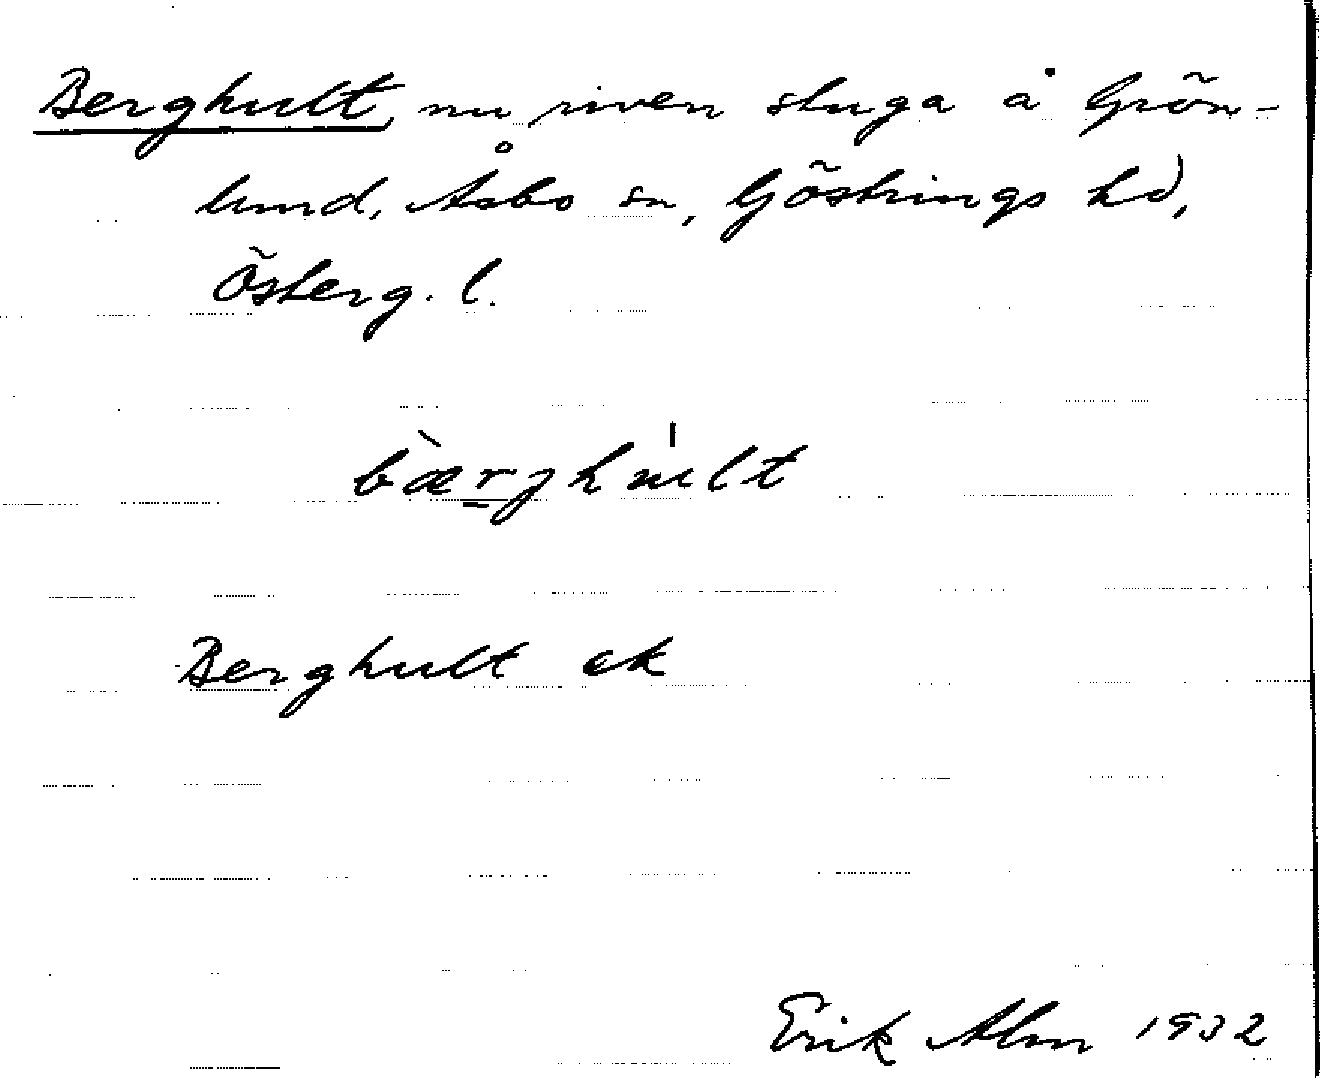 Berghult, nu riven stuga å Grön-
lund, Åsbo sn, Göstrings hd,
Österg. l.
bæ̀rjhu̍lt
Berghult ek
Erik Alm 1932